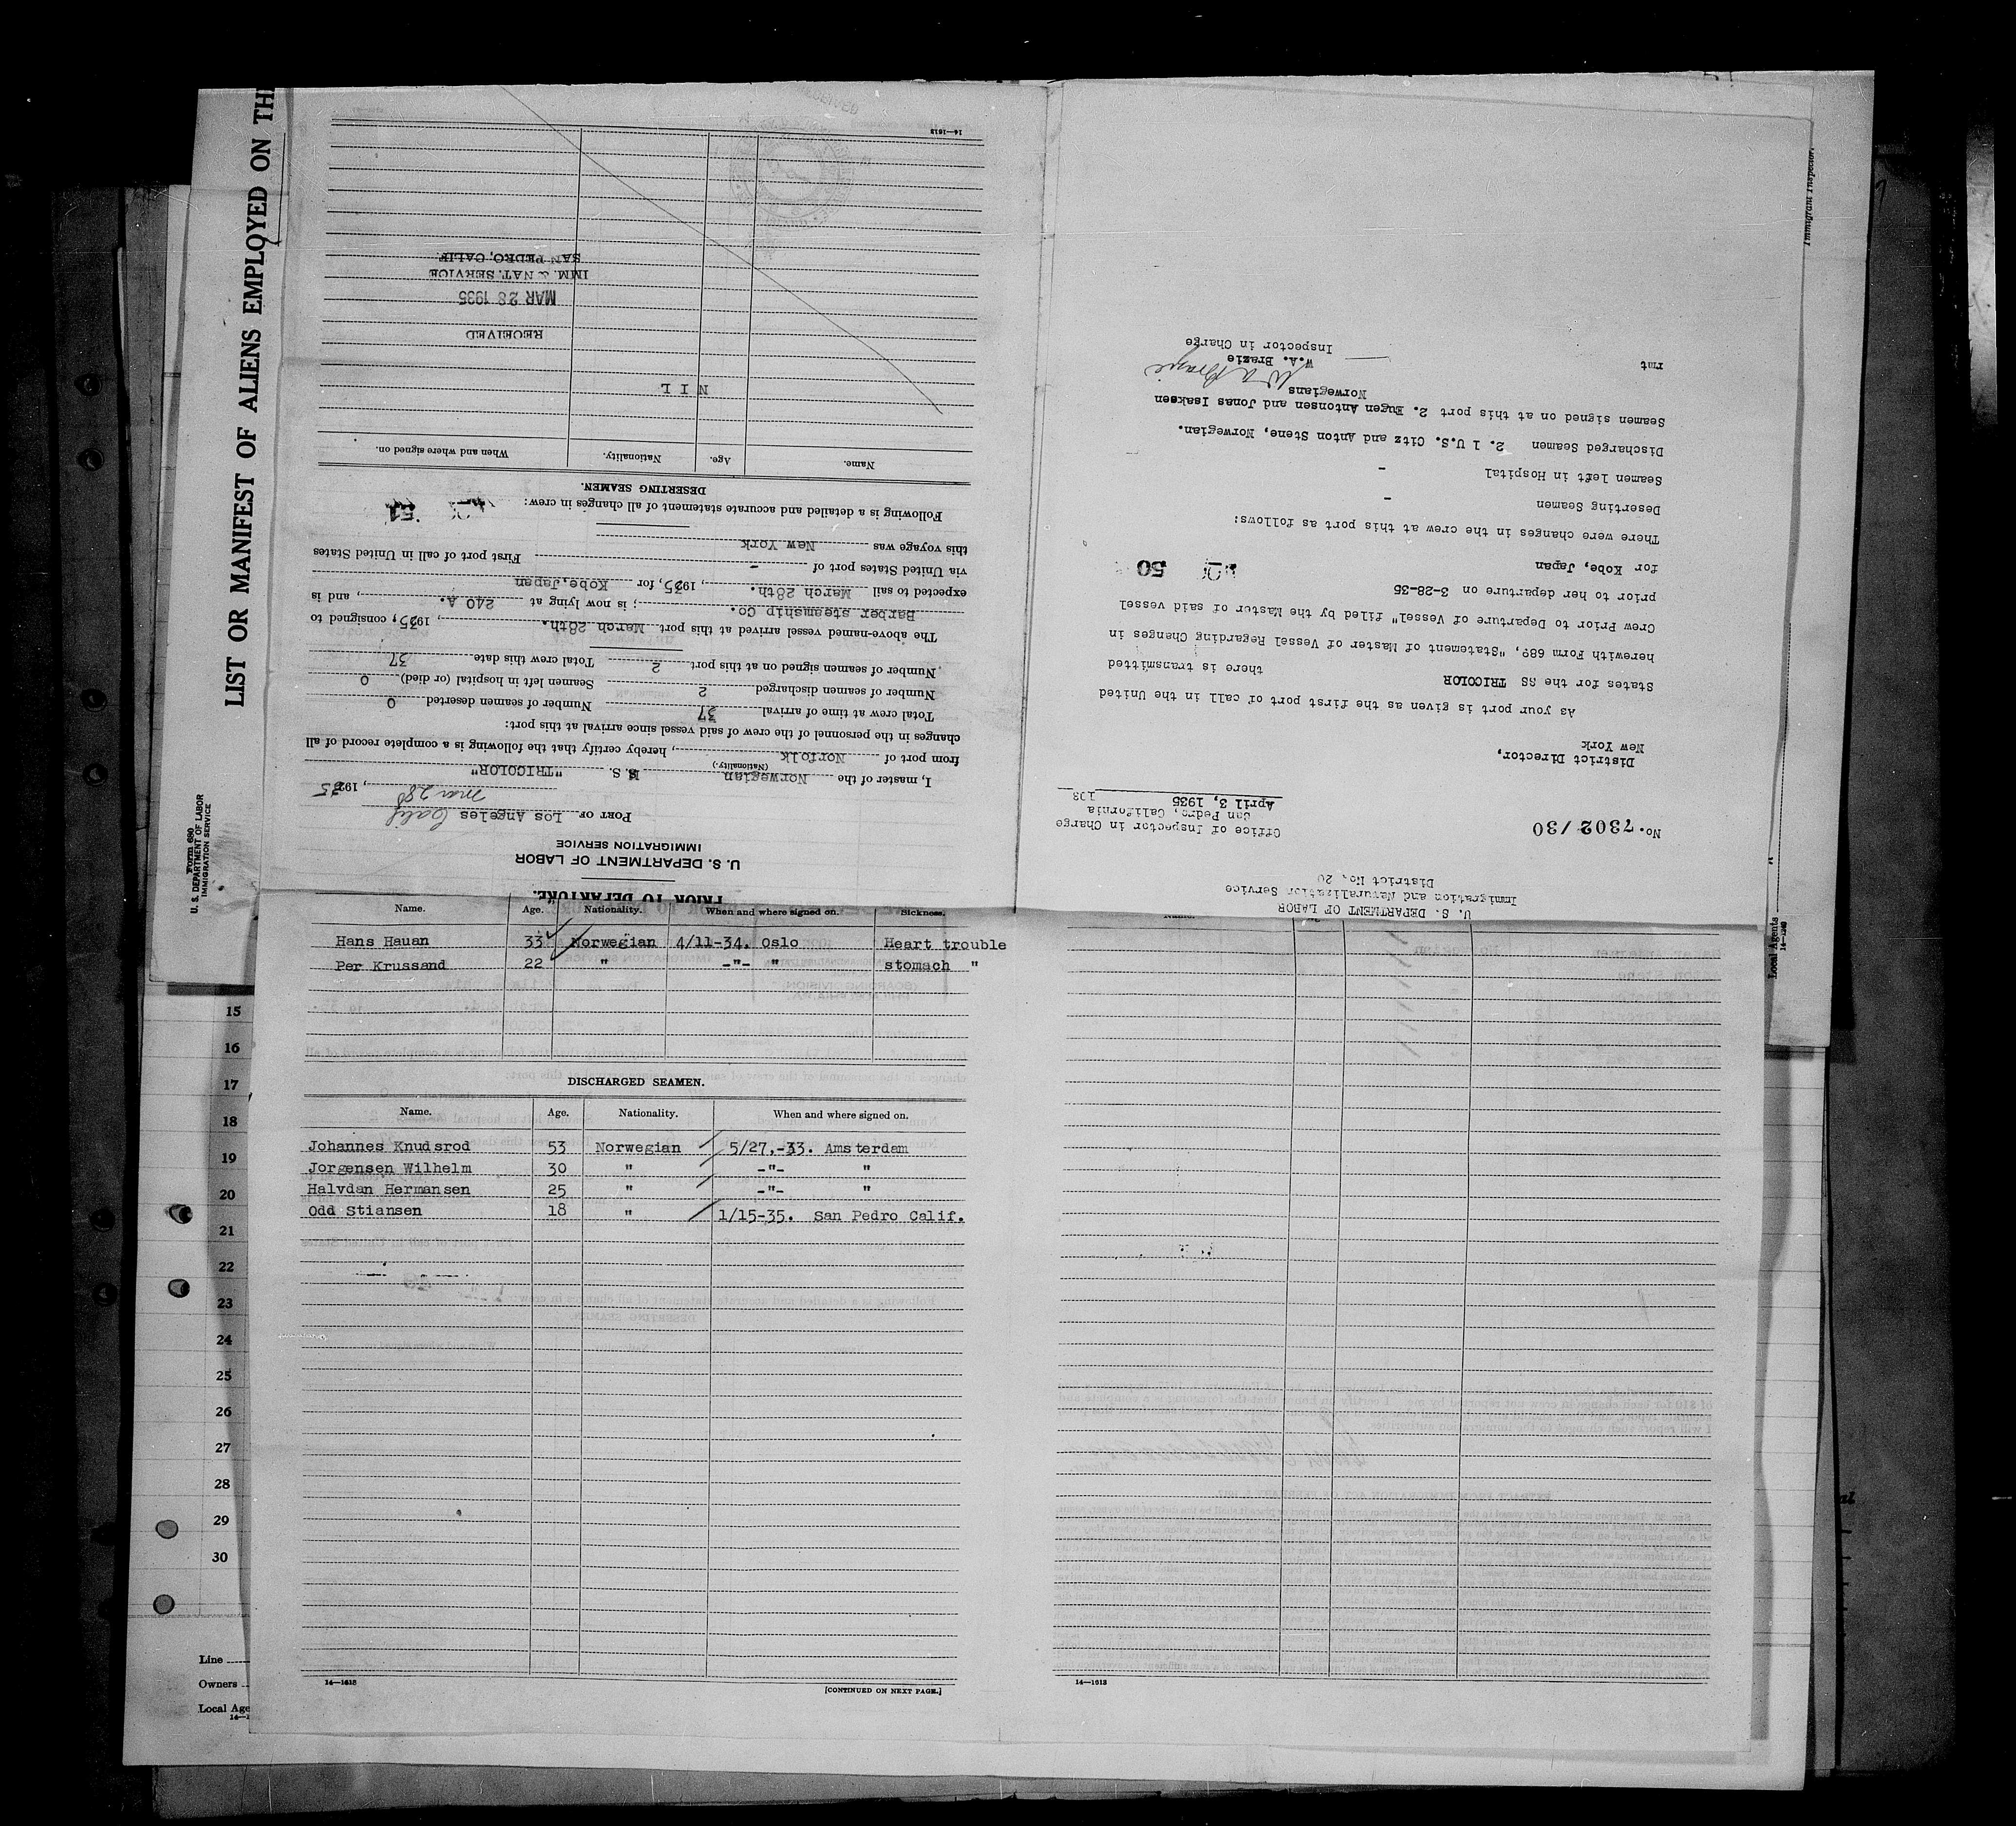 LIST OR MANIFEST OF ALIENS EMPLOYED ON TH
Form 680
U. S. DEPARTMENT OF LABOR
IMMIGRATION SERVICE
PRIOR TO DEPARTURE.
U. S. DEPARTMENT OF LABOR
IMMIGRATION SERVICE
PORT OF Los Angeles Calif
Mar 28, 1935
I, master of the Norwegian M. S. "TRICOLOR"
(Nationality.)
from port of Norfolk, hereby certify that the following is a complete record of all
changes in the personnel of the crew of said vessel since arrival at this port:
Total crew at time of arrival 37 Number of seamen deserted 0
Number of seamen discharged 2 Seamen left in hospital (or died) 0
Number of seamen signed on at this port 2 Total crew this date 37
The above-named vessel arrived at this port March 28th., 1935, consigned to
Barber steamship Co.; is now lying at 240 A., and is
expected to sail March 28th., 1935, for Kobe, Japan
via United States port of - First port of call in United States
this voyage was New York
Following is a detailed and accurate statement of all changes in crew: 51
DESERTING SEAMEN.
Name. Age. Nationality. When and where signed on.
N I L
RECEIVED
MAR 28 1935
IMM. & NAT. SERVICE
SAN PEDRO, CALIF.
14—1613
U. S. DEPARTMENT OF LABOR
Immigration and Naturalization Service
District No. 20
No. 7302/30
Office of Inspector in Charge
San Pedro, California
April 3, 1935
District Director,
New York
As your port is given as the first port of call in the United
States for the SS TRICOLOR there is transmitted
herewith Form 689, "Statement of Master of Vessel Regarding Changes in
Crew Prior to Departure of Vessel" filed by the Master of said vessel
prior to her departure on 3-28-35
for Kobe, Japan
50
There were changes in the crew at this port as follows:
Deserting Seamen -
Seamen left in Hospital -
Discharged Seamen 2. 1 U.S. Citz and Anton Stene, Norwegian.
Seamen signed on at this port 2. Eugen Antonsen and Jonas Isaksen
Norwegians
W A Brazie
W.A. Brazie
Inspector in Charge
rmt
Immigrant Inspector.
Name. Age. Nationality. When and where signed on. Sickness.
Hans Hauan 33 Norwegian 4/11-34. Oslo Heart trouble
Per Krussand 22 " -"- " stomach "
DISCHARGED SEAMEN.
Name. Age. Nationality. When and where signed on.
Johannes Knudsrod 53 Norwegian 5/27,-33. Amsterdam
Jorgensen Wilhelm 30 " -"- "
Halvdan Hermansen 25 " -"- "
Odd Stiansen 18 " 1/15-35. San Pedro Calif.
14—1613
[CONTINUED ON NEXT PAGE.]
14—1613
15
16
17
18
19
20
21
22
23
24
25
26
27
28
29
30
Line
Owners
Local Age
Local Agents